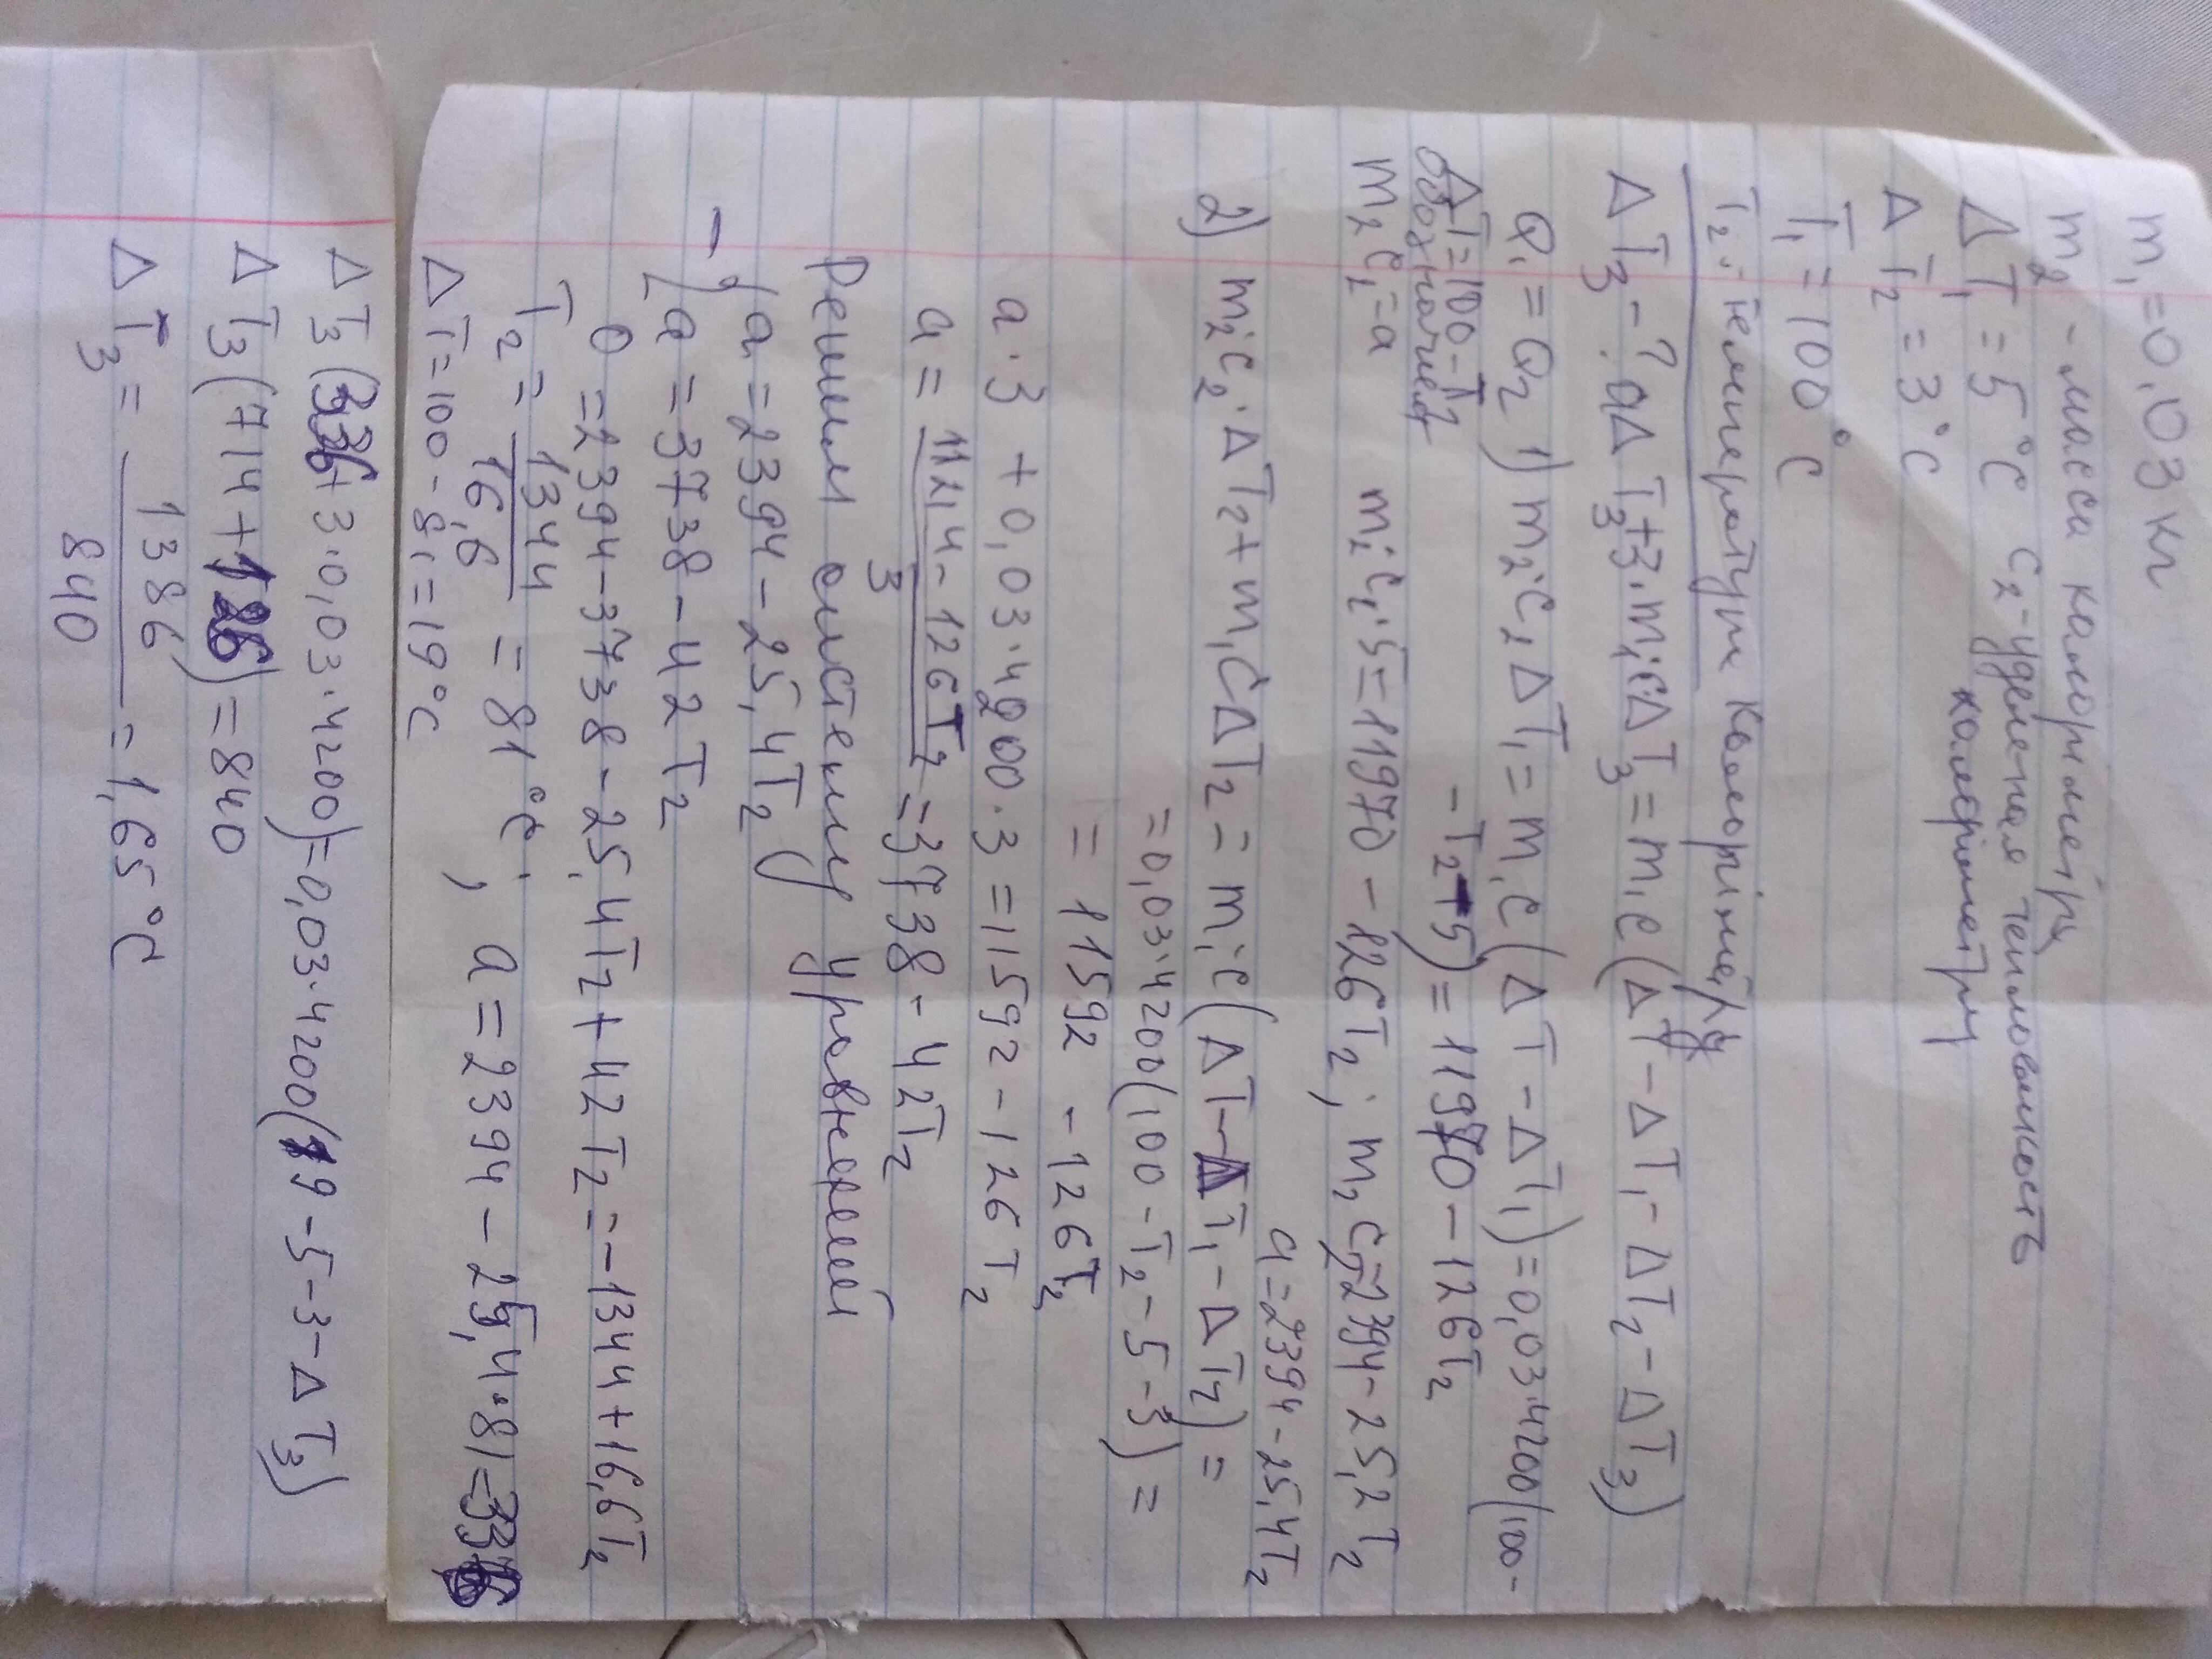 m₁=0,03 кг
m₂ - масса калориметра
ΔT₁ = 5°C c₂-удельная теплоёмкость
калориметру
ΔT₂ = 3°C
T₁ = 100°C
T₂ - температура калориметра
ΔT₃ - ? aΔT₃+3·m₁cΔT₃ = m₁c(ΔT-ΔT₁-ΔT₂-ΔT₃)
Q₁=Q₂ 1) m₂·c₂ΔT₁=m₁c(ΔT-ΔT₁)=0,03·4200(100-
ΔT=100-T₂ -T₂-5)=11970-126T₂
обозначает
m₂c₂=a m₂c₂·5=11970-126T₂; m₂c₂=2394-25,2T₂
a=2394-25,4T₂
2) m₂c₂·ΔT₂+m₁cΔT₂=m₁c(ΔT-ΔT₁-ΔT₂)=
=0,03·4200(100-T₂-5-3)=
= 11592 -126T₂
a·3+0,03·4200·3=11592-126T₂
a = 11214-126T₂ / 3 =3738-42T₂
Решим систему уравнений
- { a=2394-25,4T₂
{ a=3738-42T₂
0=2394-3738-25,4T₂+42T₂=-1344+16,6T₂
T₂= 1344 / 16,6 = 81°C; a=2394-25,4·81=336
ΔT=100-81=19°C
ΔT₃(336+3·0,03·4200)=0,03·4200(19-5-3-ΔT₃)
ΔT₃(714+126)=840
ΔT₃= 1386 / 840 =1,65°C